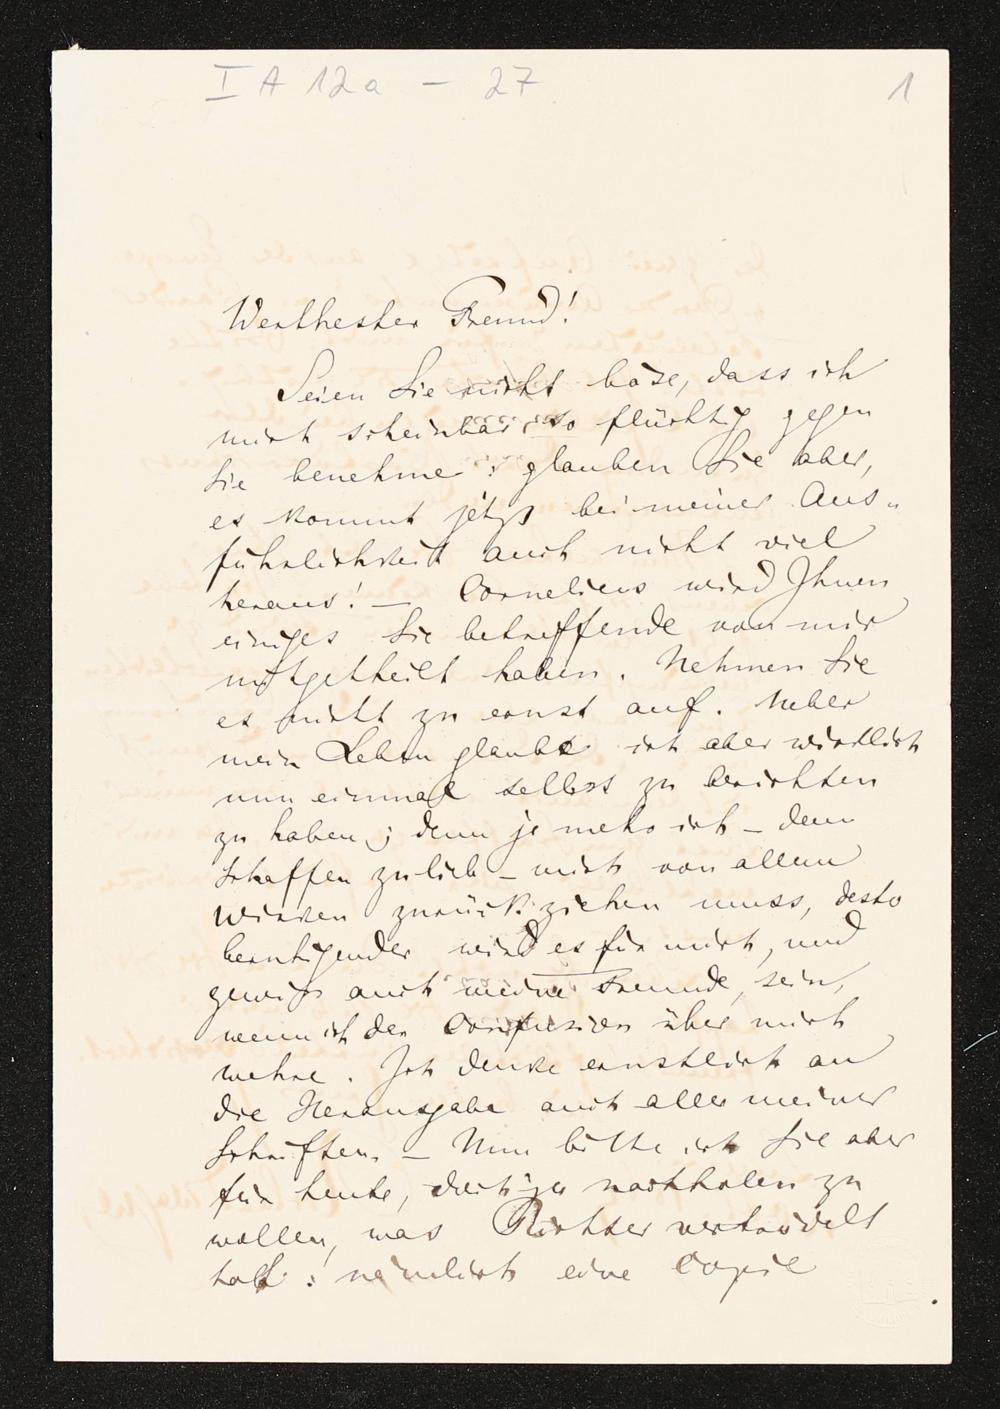 I A 12a – 27
1
Werthester Freund!
Seien Sie nicht böse, dass ich
mich scheinbar so flüchtig gegen
Sie benehme: glauben Sie aber,
es kommt jetzt bei meiner Aus-
führlichkeit auch nicht viel
heraus! — Cornelius wird Ihnen
einiges Sie betreffende von mir
mitgetheilt haben. Nehmen Sie
es nicht zu ernst auf. Ueber
mein Leben glaube ich aber wirklich
nun einmal selbst zu berichten
zu haben; denn je mehr ich – dem
Schaffen zulieb – mich von allem
Wirken zurückziehen muss, desto
beruhigender wird es für mich, und
gewiss auch meine Freunde, sein,
wenn ich der Confusion über mich
wehre. Ich denke ernstlich an
die Herausgabe auch aller meiner
Schriften. – Nun bitte ich Sie aber
für heute, dasjenige nachholen zu
wollen, was Richter vertrödelt
hat: nämlich eine Copie